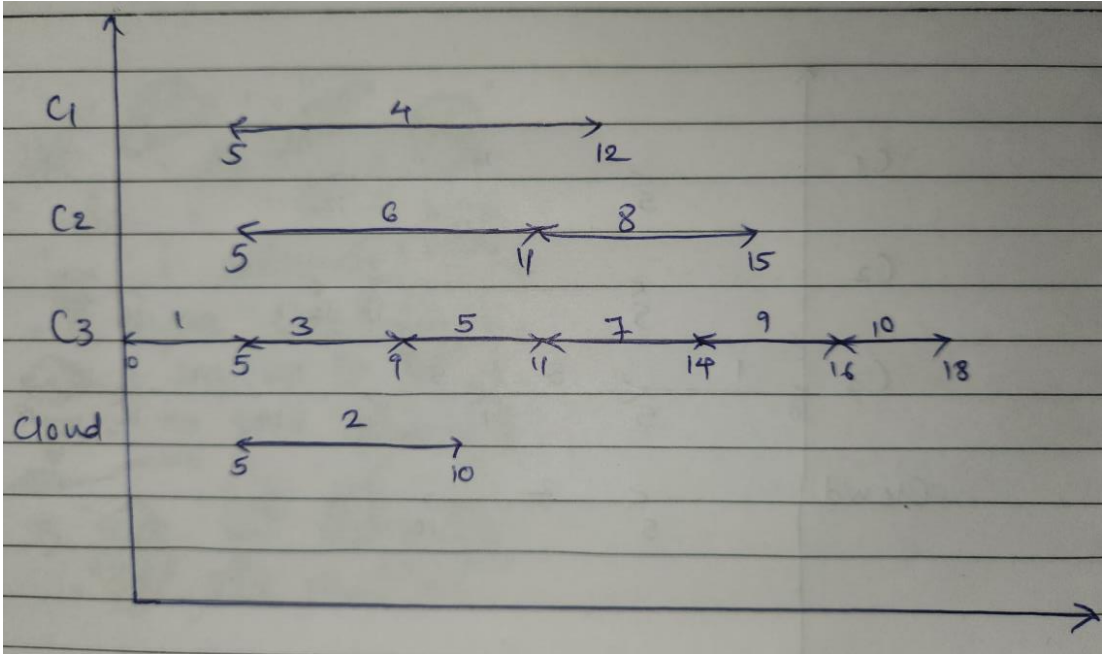 C1 4
5 12
C2 6 8
5 11 15
C3 1 3 5 7 9 10
0 5 9 11 14 16 18
Cloud 2
5 10